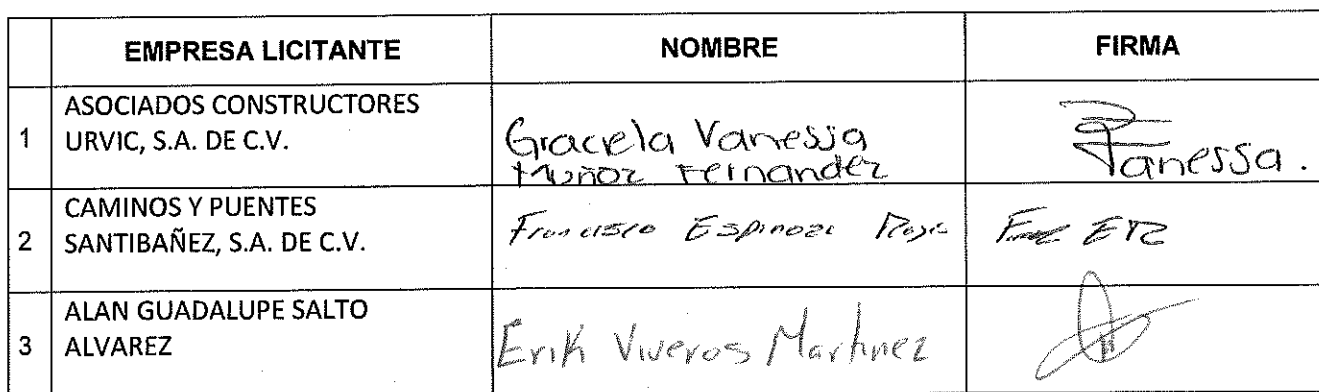 EMPRESA LICITANTE NOMBRE FIRMA
1 ASOCIADOS CONSTRUCTORES
URVIC, S.A. DE C.V.
Graciela Vanessa
Muñoz Fernandez
Vanessa.
2 CAMINOS Y PUENTES
SANTIBAÑEZ, S.A. DE C.V.
Francisco Espinoza
3 ALAN GUADALUPE SALTO
ALVAREZ
Erik Viveros Martinez